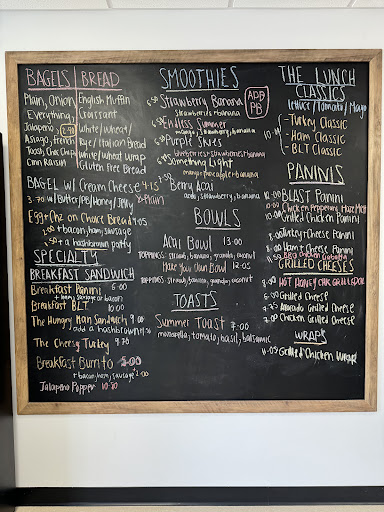 BAGELS | BREAD
Plain, Onion English Muffin
Everything, Croissant
Jalapeño, 2.90 White/Wheat/
Asiago, French Rye/Italian Bread
Toast, Choc Chip White/Wheat Wrap
Cinn Raisin Gluten Free Bread
BAGEL w/ Cream Cheese 4.15
3.70 w/ Butter/PB/Honey/Jelly
Egg+Chz on Choice Bread
2.00 + bacon, ham, sausage
1.50 + a hashbrown patty
SPECIALTY
BREAKFAST SANDWICH
Breakfast Panini 6.00
+ ham, sausage or bacon
Breakfast BLT 10.00
The Hungry Man Sandwich 9.00
add a hashbrown
The Cheesy Turkey 9.70
Breakfast Burrito
+ bacon, ham, sausage
Jalapeño Popper
SMOOTHIES
ADD
PB
6.50 Strawberry Banana
strawberries + banana
6.50 Endless Summer
mango, strawberry, banana
Purple Skies
blueberries + strawberries + banana
Something Light
mango + pineapple + banana
Berry Acai
acai, strawberry, banana
BOWLS
Acai Bowl 13.00
TOPPINGS: strawb, banana, granola, coconut
Make Your Own Bowl 12.05
TOASTS
Summer Toast 7.00
mozzarella, tomato, basil, balsamic
THE LUNCH
CLASSICS
lettuce/Tomato/Mayo
- Turkey Classic
- Ham Classic
- BLT Classic
PANINIS
12.00 BLAST Panini
10.00 Chicken Pepperoni
10.00 Grilled Chicken Panini
8.00 Turkey + Cheese Panini
8.00 Ham + Cheese Panini
BBQ Chicken
GRILLED CHEESES
HOT HONEY CHK
Grilled Cheese
7.75 Avocado Grilled Cheese
Chicken Grilled Cheese
WRAPS
11.05 Grilled Chicken Wrap